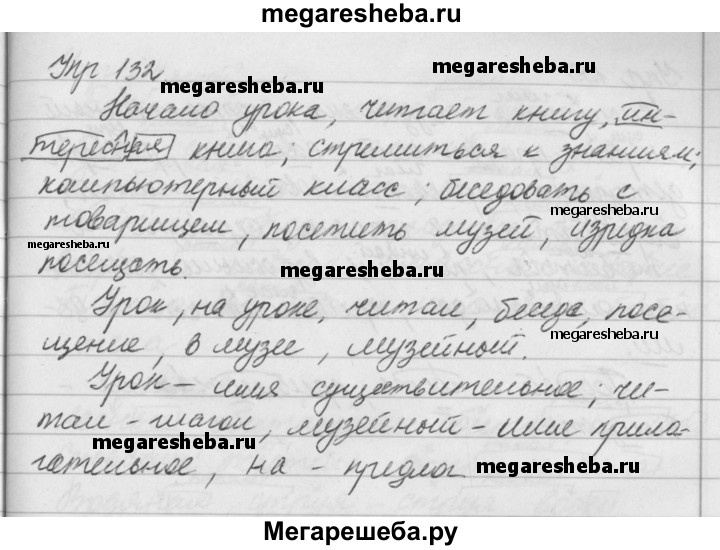 megaresheba.ru
Упр 132
megaresheba.ru
Начало урока, читает книгу, ин-
тересная книга; стремиться к знаниям;
компьютерный класс; беседовать с
megaresheba.ru
товарищем, посетить музей, изредка
megaresheba.ru
посещать.
megaresheba.ru
Урок, на уроке, читал, беседа, посе-
megaresheba.ru
щение, в музее, музейный.
Урок – имя существительное; чи-
тал – глагол, музейный – имя прила-
megaresheba.ru
гательное, на – предлог
megaresheba.ru
Мегарешеба.ру